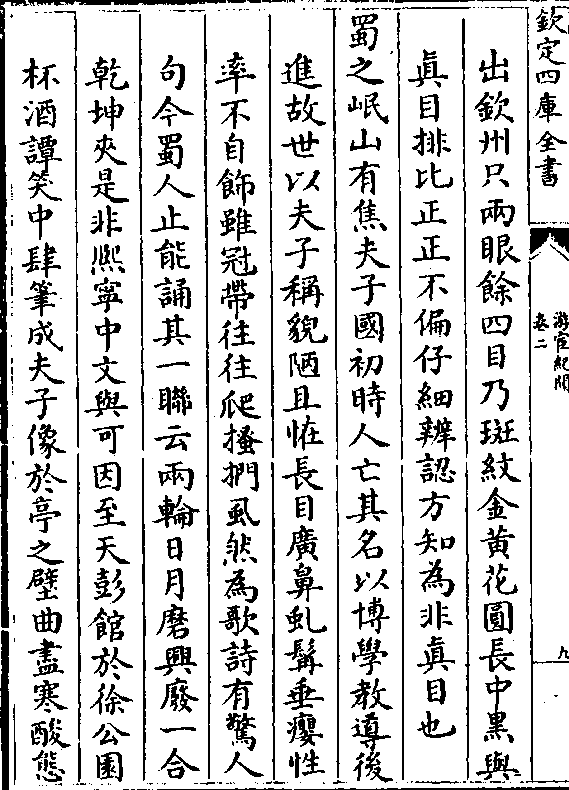 欽定四庫全書
游宦紀聞
卷二
九
出欽州只兩眼餘四目乃斑紋金黃花圓長中黑與
真目排比正正不偏仔細辨認方知為非真目也
蜀之岷山有焦夫子國初時人亡其名以博學教導後
進故世以夫子稱貌陋且怪長目廣鼻虬髯垂癭性
率不自飾雖冠帶往往爬搔捫虱然為歌詩有驚人
句今蜀人止能誦其一聯云兩輪日月磨興廢一合
乾坤夾是非熙寧中文與可因至天彭館於徐公園
杯酒譚笑中肆筆成夫子像於亭之壁曲盡寒酸態